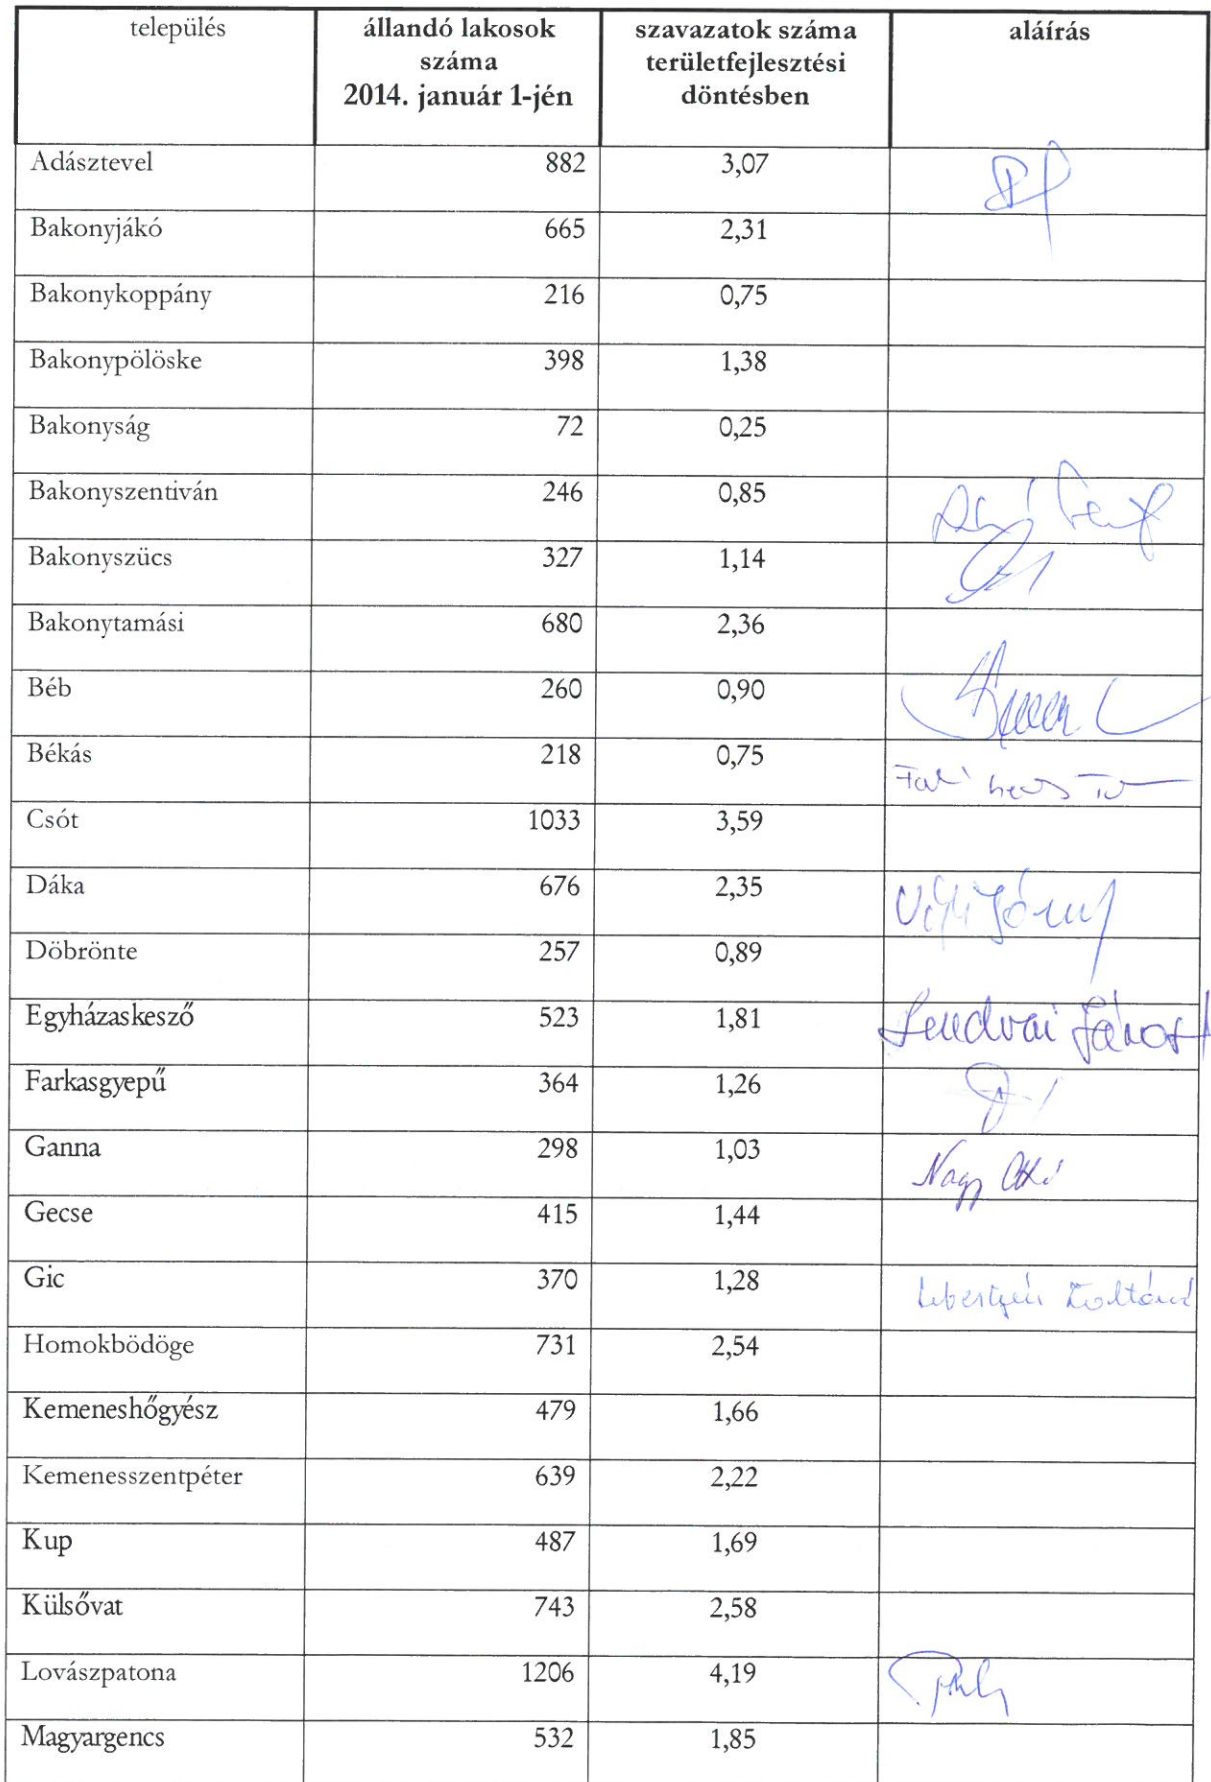 település állandó lakosok száma 2014. január 1-jén szavazatok száma területfejlesztési döntésben aláírás
Adásztevel 882 3,07
Bakonyjákó 665 2,31
Bakonykoppány 216 0,75
Bakonypölöske 398 1,38
Bakonyság 72 0,25
Bakonyszentiván 246 0,85
Bakonyszücs 327 1,14
Bakonytamási 680 2,36
Béb 260 0,90
Békás 218 0,75
Csót 1033 3,59
Dáka 676 2,35
Döbrönte 257 0,89
Egyházaskesző 523 1,81 Lendvai János
Farkasgyepű 364 1,26
Ganna 298 1,03 Nagy Ottó
Gecse 415 1,44
Gic 370 1,28 Zoltánné
Homokbödöge 731 2,54
Kemeneshőgyész 479 1,66
Kemenesszentpéter 639 2,22
Kup 487 1,69
Külsővat 743 2,58
Lovászpatona 1206 4,19
Magyargencs 532 1,85